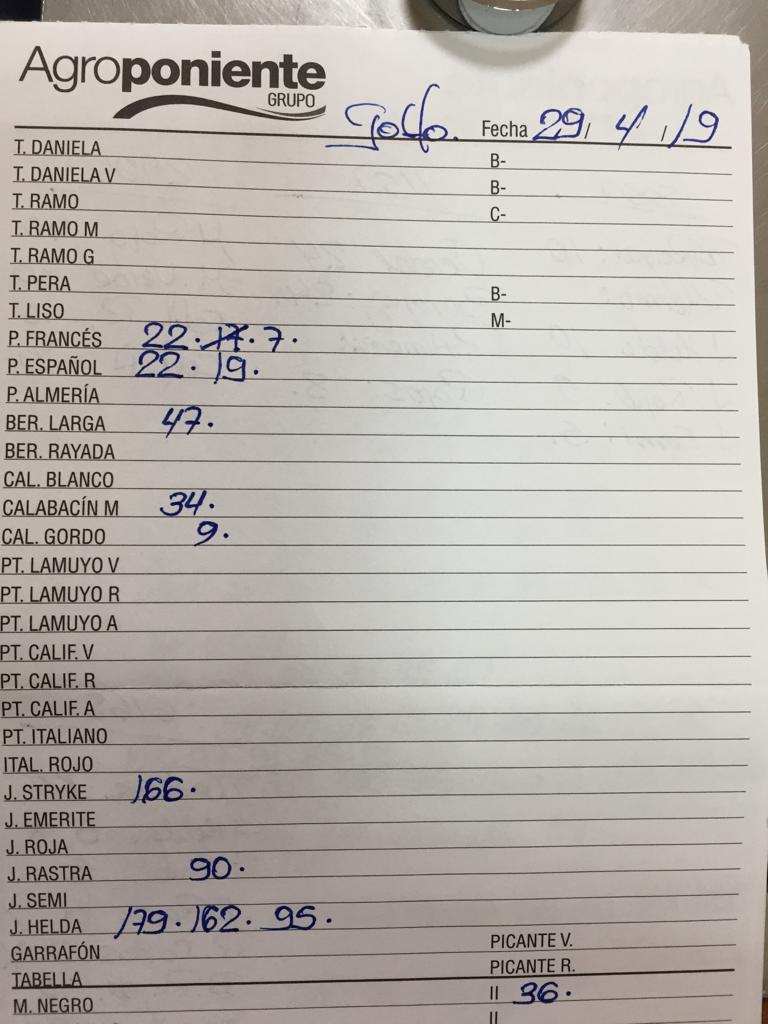 Agroponiente
GRUPO
Golfo. Fecha 29/ 4 / 19
T. DANIELA B-
T. DANIELA V B-
T. RAMO C-
T. RAMO M
T. RAMO G
T. PERA B-
T. LISO M-
P. FRANCÉS 22. 17. 7.
P. ESPAÑOL 22. 19.
P. ALMERÍA
BER. LARGA 47.
BER. RAYADA
CAL. BLANCO
CALABACÍN M 34.
CAL. GORDO 9.
PT. LAMUYO V
PT. LAMUYO R
PT. LAMUYO A
PT. CALIF. V
PT. CALIF. R
PT. CALIF. A
PT. ITALIANO
ITAL. ROJO
J. STRYKE 166.
J. EMERITE
J. ROJA
J. RASTRA 90.
J. SEMI
J. HELDA 179. 162. 95.
GARRAFÓN PICANTE V.
TABELLA PICANTE R.
M. NEGRO II 36.
II